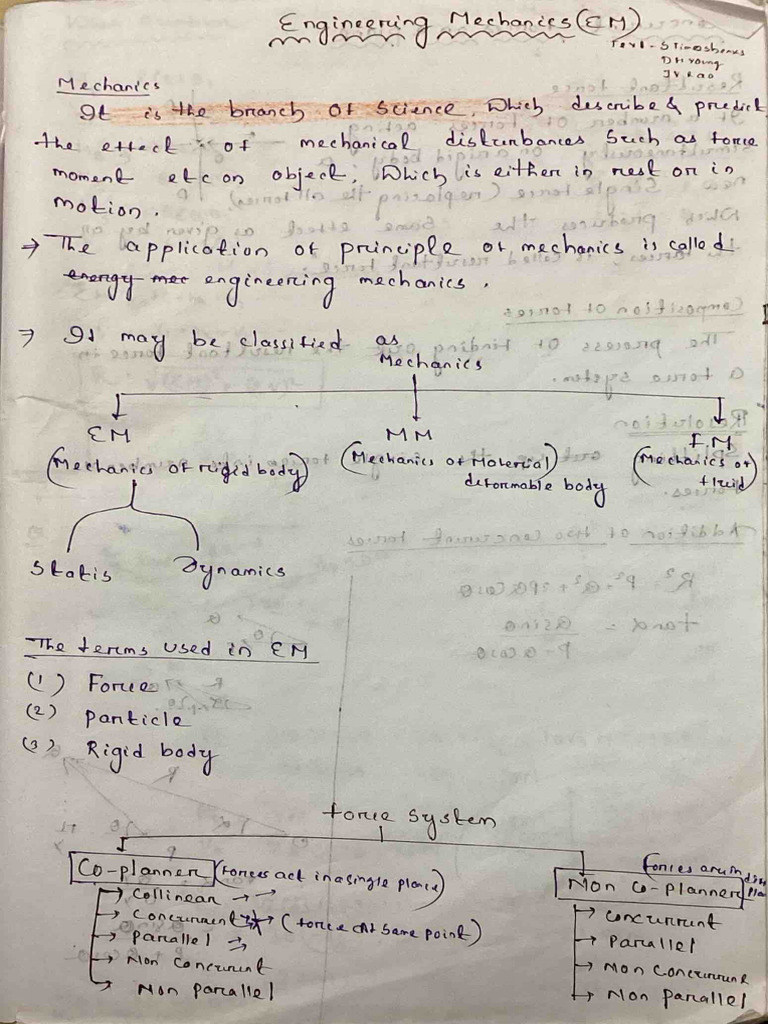 Engineering Mechanics (EM)
Text - S Timoshenks
DH Young
JV Rao
Mechanics
It is the branch of science, Which describe & predict
the effect of mechanical disturbances such as force
moment etc on object, Which is either in rest or in
motion.
→ The application of principle of mechanics is called
energy mec engineering mechanics.
→ It may be classified as
Mechanics
EM MM F.M
(Mechanics of rigid body) (Mechanics of Material) (Mechanics of
deformable body fluid)
Statis Dynamics
The terms used in EM
(1) Force
(2) Particle
(3) Rigid body
force system
Co-planner (forces act in a single plane) Forces are in
Non Co-planner
→ Collinear → →
→ Concurrent (force at same point) → Concurrent
→ Parallel → Parallel
→ Non concurrent → Non Concurrent
→ Non parallel → Non parallel